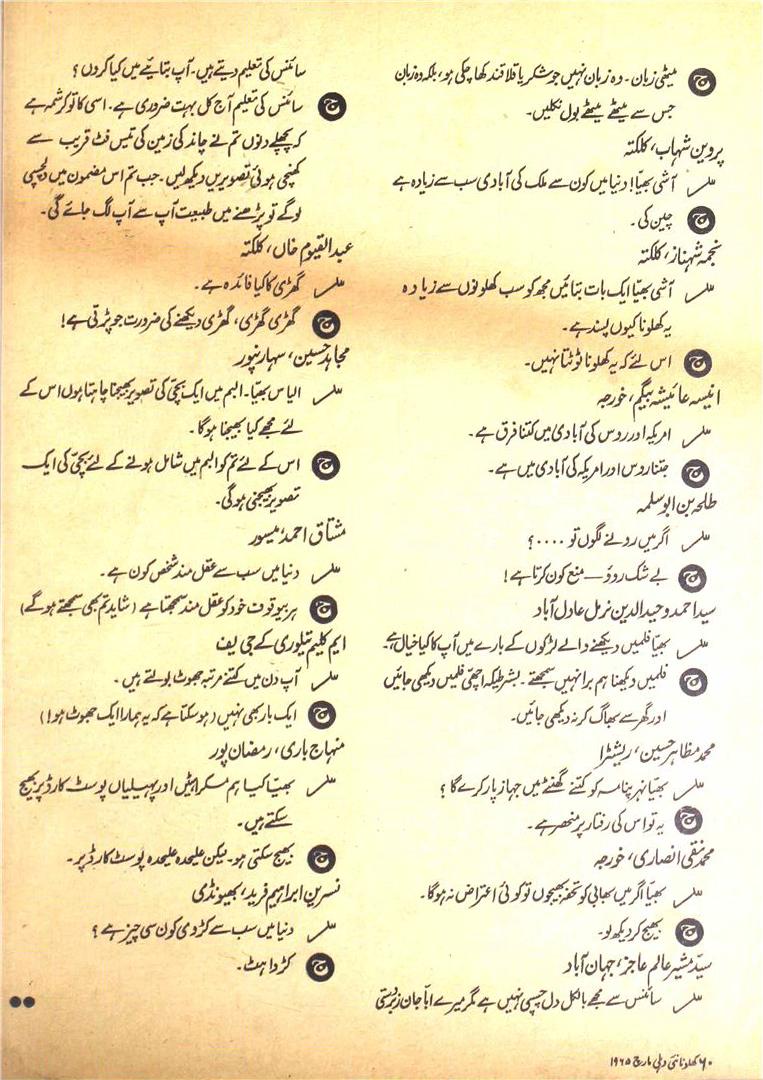 ج میٹھی زبان۔ وہ زبان نہیں جو شکر یا قلاقند کھا چکی ہو، بلکہ وہ زبان
جس سے میٹھے میٹھے بول نکلیں۔
پروین شہاب، کلکتہ
س آشی بھیّا! دنیا میں کون سے ملک کی آبادی سب سے زیادہ ہے
ج چین کی۔
نجمہ شہناز، کلکتہ
س آشی بھیّا ایک بات بتائیں مجھ کو سب کھلونوں سے زیادہ
یہ کھلونا کیوں پسند ہے۔
ج اس لئے کہ یہ کھلونا ٹوٹتا نہیں۔
انیسہ عائیشہ بیگم، خورجہ
س امریکہ اور روس کی آبادی میں کتنا فرق ہے۔
ج جتنا روس اور امریکہ کی آبادی میں ہے۔
طلحہ بن ابو سلمہ
س اگر میں رونے لگوں تو ....؟
ج بے شک روؤ — منع کون کرتا ہے!
سید احمد وحید الدین نرمل عادل آباد
س بھیّا فلمیں دیکھنے والے لڑکوں کے بارے میں آپ کا کیا خیال ہے۔
ج فلمیں دیکھنا ہم برا نہیں سمجھتے۔ بشرطیکہ اچھی فلمیں دیکھی جائیں
اور گھر سے بھاگ کر نہ دیکھی جائیں۔
محمد مظاہر حسین، ریشٹرا
س بھیّا نہر پنامہ کو کتنے گھنٹے میں جہاز پار کرے گا؟
ج یہ تو اس کی رفتار پر منحصر ہے۔
محمد نقی انصاری، خورجہ
س بھیّا اگر میں بھابی کو تحفہ بھیجوں تو کوئی اعتراض نہ ہوگا۔
ج بھیج کر دیکھ لو۔
سیّد مشیر عالم عاجز، جہان آباد
س سائنس سے مجھے بالکل دل چسپی نہیں ہے مگر میرے ابّا جان زبردستی
سائنس کی تعلیم دیتے ہیں۔ آپ بتایئے میں کیا کروں؟
ج سائنس کی تعلیم آج کل بہت ضروری ہے۔ اسی کا تو کرشمہ ہے
کہ پچھلے دنوں تم نے چاند کی زمین کی تیس فٹ قریب سے
کھنچی ہوئی تصویریں دیکھ لیں۔ جب تم اس مضمون میں دلچسپی
لوگے تو پڑھنے میں طبیعت آپ سے آپ لگ جائے گی۔
عبد القیوم خاں، کلکتہ
س گھڑی کا کیا فائدہ ہے۔
ج گھڑی گھڑی، گھڑی دیکھنے کی ضرورت جو پڑتی ہے!
مجاہد حسین، سہارنپور
س الیاس بھیّا۔ البم میں ایک بچّی کی تصویر بھیجنا چاہتا ہوں اس کے
لئے مجھے کیا بھیجنا ہوگا۔
ج اس کے لئے تم کو البم میں شامل ہونے کے لئے بچّی کی ایک
تصویر بھیجنی ہوگی۔
مشتاق احمد، میسور
س دنیا میں سب سے عقل مند شخص کون ہے۔
ج ہر بیوقوف خود کو عقل مند سمجھتا ہے (شاید تم بھی سمجھتے ہوگے)
ایم کلیم تیلوری کے جی ایف
س آپ دن میں کتنے مرتبہ جھوٹ بولتے ہیں۔
ج ایک بار بھی نہیں (ہو سکتا ہے کہ یہ ہمارا ایک جھوٹ ہو!)
منہاج باری، رمضان پور
س بھیّا کیا ہم مسکراہٹیں اور پہیلیاں پوسٹ کارڈ پر بھیج
سکتے ہیں۔
ج بھیج سکتی ہو۔ لیکن علیحدہ علیحدہ پوسٹ کارڈ پر۔
نسرین ابراہیم فرید، بھیونڈی
س دنیا میں سب سے کڑوی کون سی چیز ہے؟
ج کڑواہٹ۔
۶۰ کھلونا نئی دہلی مارچ ۱۹۶۵